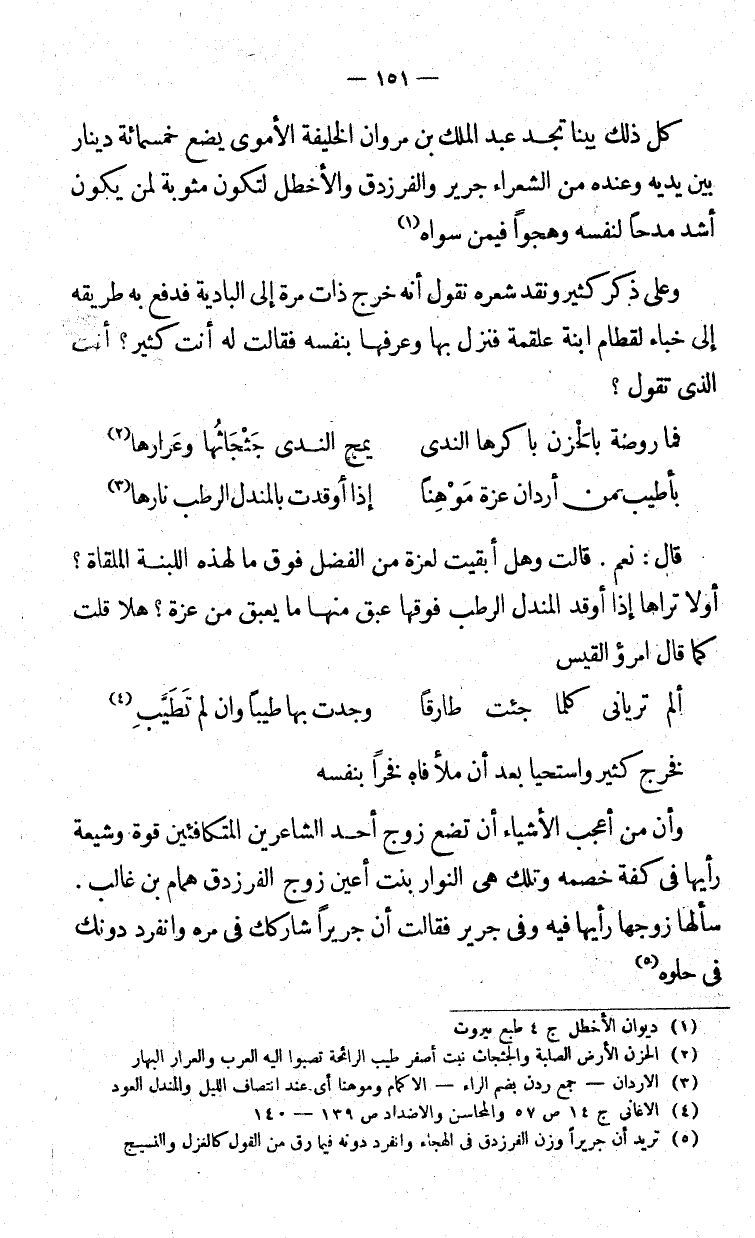 — ١٥١ —
كل ذلك بينا تجد عبد الملك بن مروان الخليفة الأموى يضع خمسمائة دينار
بين يديه وعنده من الشعراء جرير والفرزدق والأخطل لتكون مثوبة لمن يكون
أشد مدحاً لنفسه وهجواً فيمن سواه (١)
وعلى ذكر كثير ونقد شعره نقول أنه خرج ذات مرة إلى البادية فدفع به طريقه
إلى خباء لقطام ابنة علقمة فنزل بها وعرفها بنفسه فقالت له أنت كثير ؟ أنت
الذى تقول ؟
فما روضة بالحَزن باكرها الندى يمج الندى جَثْجَاثُها وعَرارها (٢)
بأطيب من أردان عزة مَوْهِناً إذا أوقدت بالمندل الرطب نارها (٣)
قال : نعم . قالت وهل أبقيت لعزة من الفضل فوق ما لهذه اللبنة الملقاة ؟
أولا تراها إذا أوقد المندل الرطب فوقها عبق منها ما يعبق من عزة ؟ هلا قلت
كما قال امرؤ القيس
ألم ترياني كلما جئت طارقاً وجدت بها طيباً وان لم تَطَيَّبِ (٤)
فخرج كثير واستحيا بعد أن ملأ فاه فخراً بنفسه
وأن من أعجب الأشياء أن تضع زوج أحد الشاعرين المتكافئين قوة وشيعة
رأيها فى كفة خصمه وتلك هى النوار بنت أعين زوج الفرزدق همام بن غالب .
سألها زوجها رأيها فيه وفى جرير فقالت أن جريراً شاركك فى مره وانفرد دونك
فى حلوه (٥)
(١) ديوان الأخطل ج ٤ طبع بيروت
(٢) الحزن الأرض الصلبة والجثجاث نبت أصفر طيب الرائحة تصبوا اليه العرب والعرار البهار
(٣) الاردان — جمع ردن بضم الراء — الاكمام وموهنا أى عند انتصاف الليل والمندل العود
(٤) الاغانى ج ١٤ ص ٥٧ والمحاسن والاضداد ص ١٣٩ — ١٤٠
(٥) تريد أن جريراً وزن الفرزدق فى الهجاء وانفرد دونه فيما رق من القول كالغزل والنسيج